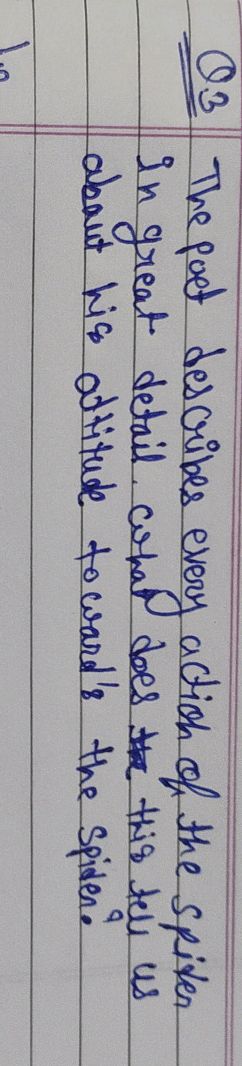 Q3 The poet describes every action of the spider
in great detail. what does this tell us
about his attitude toward's the spider?